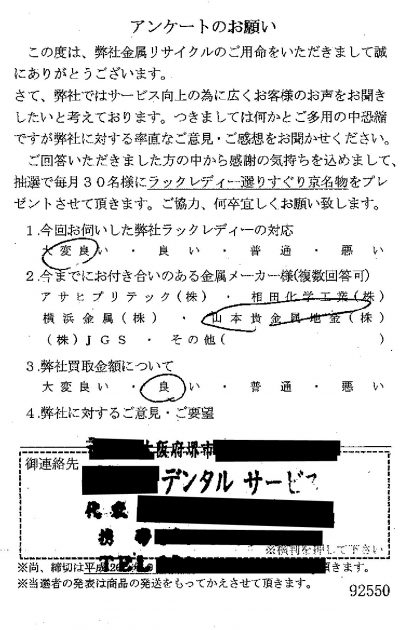 アンケートのお願い
この度は、弊社金属リサイクルのご用命をいただきまして誠
にありがとうございます。
さて、弊社ではサービス向上の為に広くお客様のお声をお聞き
したいと考えております。つきましては何かとご多用の中恐縮
ですが弊社に対する率直なご意見・ご感想をお聞かせください。
ご回答いただきました方の中から感謝の気持ちを込めまして、
抽選で毎月30名様にラックレディー選りすぐり京名物をプレ
ゼントさせて頂きます。ご協力、何卒宜しくお願い致します。
1.今回お伺いした弊社ラックレディーの対応
大変良い ・ 良い ・ 普通 ・ 悪い
2.今までにお付き合いのある金属メーカー様(複数回答可)
アサヒプリテック(株) ・ 相田化学工業(株)
横浜金属(株) ・ 山本貴金属地金(株)
(株)JGS ・ その他( )
3.弊社買取金額について
大変良い ・ 良い ・ 普通 ・ 悪い
4.弊社に対するご意見・ご要望
大阪府堺市
御連絡先
デンタルサービス
代表
携帯
※横判を押して下さい
TEL
※尚、締切は平成 頂きます。
※当選者の発表は商品の発送をもってかえさせて頂きます。
92550